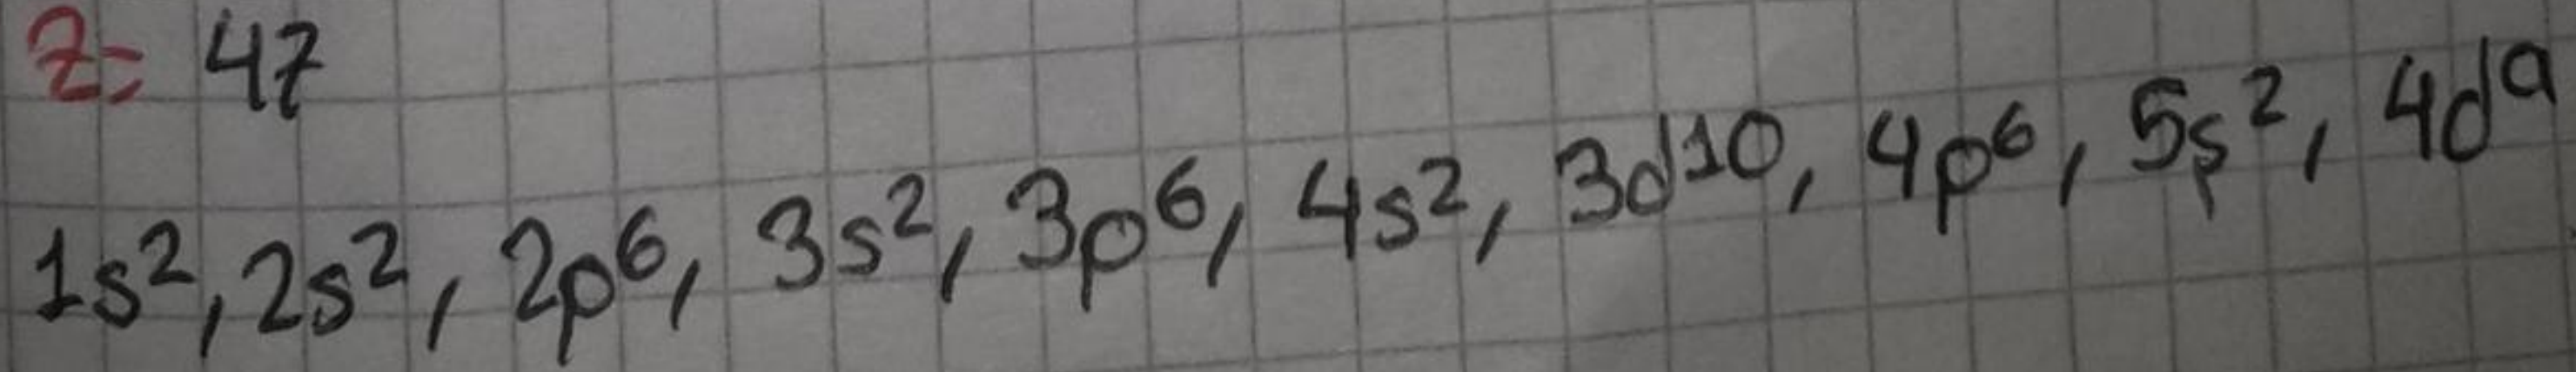 Z= 47
1s², 2s², 2p⁶, 3s², 3p⁶, 4s², 3d¹⁰, 4p⁶, 5s², 4d⁹